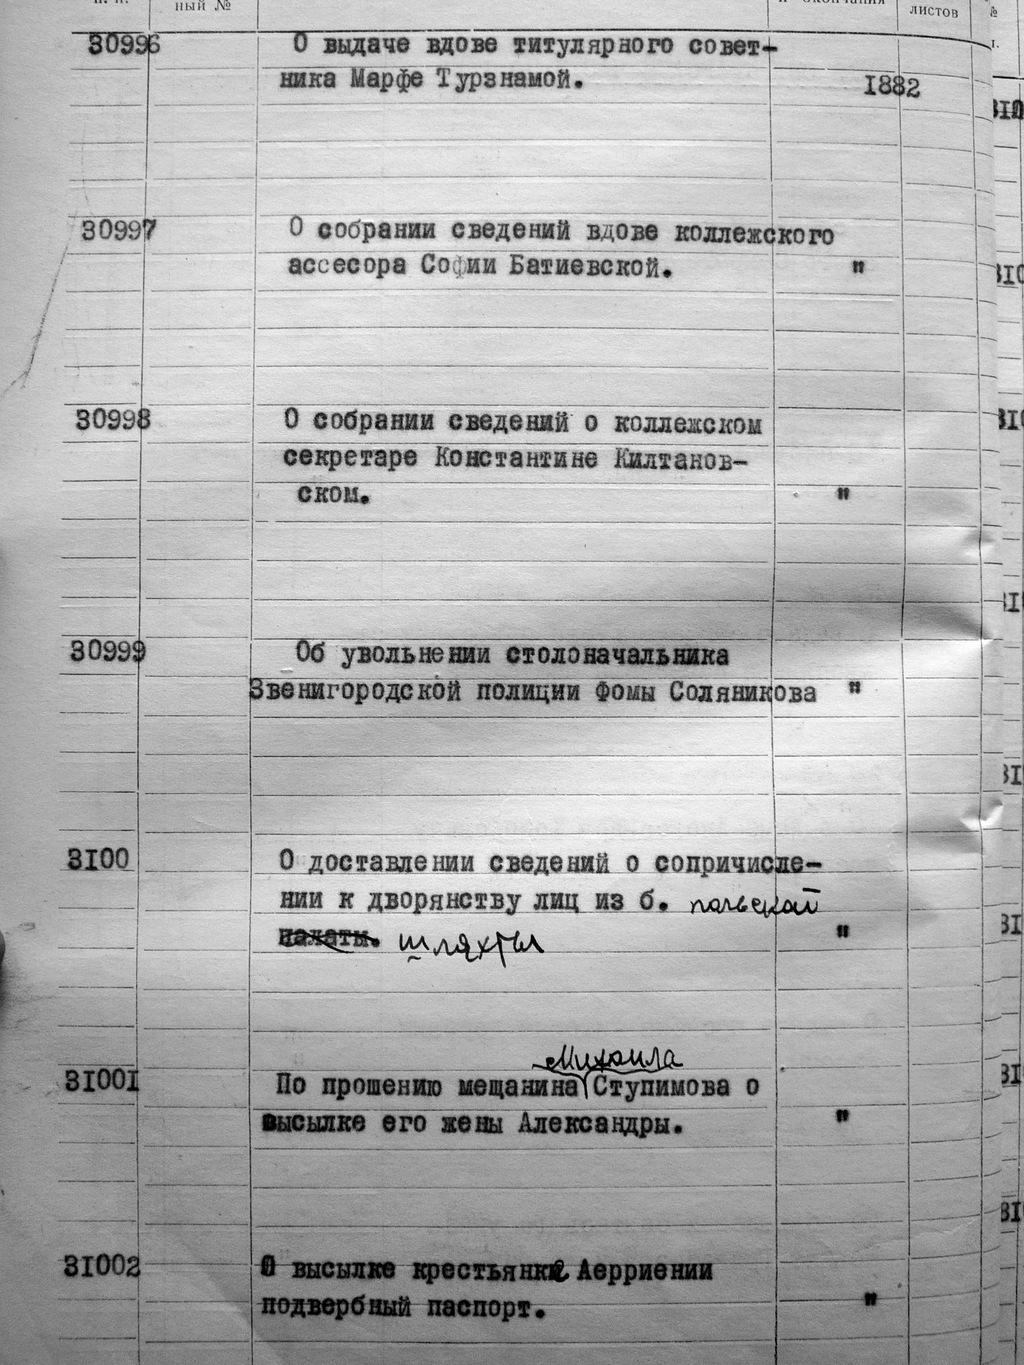 ный №
и окончания
листов
№
30996 О выдаче вдове титулярного совет-
ника Марфе Турзнамой. 1882
30997 О собрании сведений вдове коллежского
ассесора Софии Батиевской. "
30998 О собрании сведений о коллежском
секретаре Константине Килтанов-
ском. "
30999 Об увольнении столоначальника
Звенигородской полиции Фомы Соляникова "
3100 О доставлении сведений о сопричисле-
нии к дворянству лиц из б. польской
палаты. шляхты "
Михаила
31001 По прошению мещанина Ступимова о
высылке его жены Александры. "
31002 О высылке крестьянке Аерриении
подвербный паспорт. "